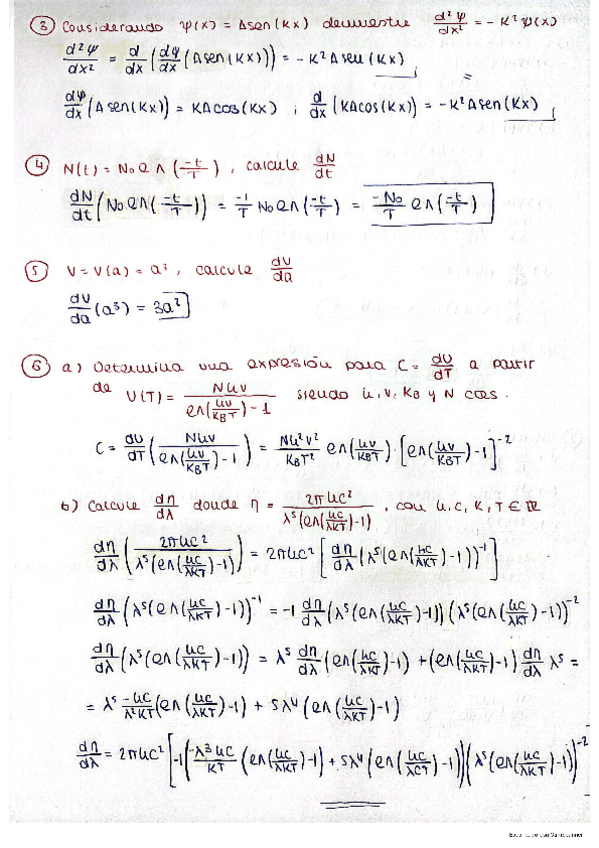 ③ Considerando ψ(x) = Asen(Kx) demuestre d²ψ/dx² = -K²ψ(x)
d²ψ/dx² = d/dx (dψ/dx (Asen(Kx))) = -K²Asen(Kx)
dψ/dx (Asen(Kx)) = KAcos(Kx) ; d/dx (KAcos(Kx)) = -K²Asen(Kx)
④ N(t) = No e∧(-t/T), calcule dN/dt
dN/dt (No e∧(-t/T)) = -1/T No e∧(-t/T) = -No/T e∧(-t/T)
⑤ V = V(a) = a³, calcule dV/da
dV/da (a³) = 3a²
⑥ a) Determina una expresión para C = dU/dT a partir
de U(T) = Nhv/(e∧(hv/KBT) - 1) siendo h, v, KB y N ctes.
C = dU/dT (Nhv/(e∧(hv/KBT) - 1)) = Nh²v²/KBT² e∧(hv/KBT) · [e∧(hv/KBT) - 1]⁻²
b) Calcule dη/dλ donde η = 2πhc²/(λ⁵(e∧(hc/λKT) - 1)), con h, c, K, T ∈ ℝ
dη/dλ (2πhc²/(λ⁵(e∧(hc/λKT) - 1))) = 2πhc² [dη/dλ (λ⁵(e∧(hc/λKT) - 1))⁻¹]
dη/dλ (λ⁵(e∧(hc/λKT) - 1))⁻¹ = -1 dη/dλ (λ⁵(e∧(hc/λKT) - 1)) (λ⁵(e∧(hc/λKT) - 1))⁻²
dη/dλ (λ⁵(e∧(hc/λKT) - 1)) = λ⁵ dη/dλ (e∧(hc/λKT) - 1) + (e∧(hc/λKT) - 1) dη/dλ λ⁵ =
= λ⁵ -hc/λ²KT (e∧(hc/λKT) - 1) + 5λ⁴ (e∧(hc/λKT) - 1)
dη/dλ = 2πhc² [-1 (-λ³hc/KT (e∧(hc/λKT) - 1) + 5λ⁴ (e∧(hc/λCT) - 1)) (λ⁵(e∧(hc/λKT) - 1))⁻²